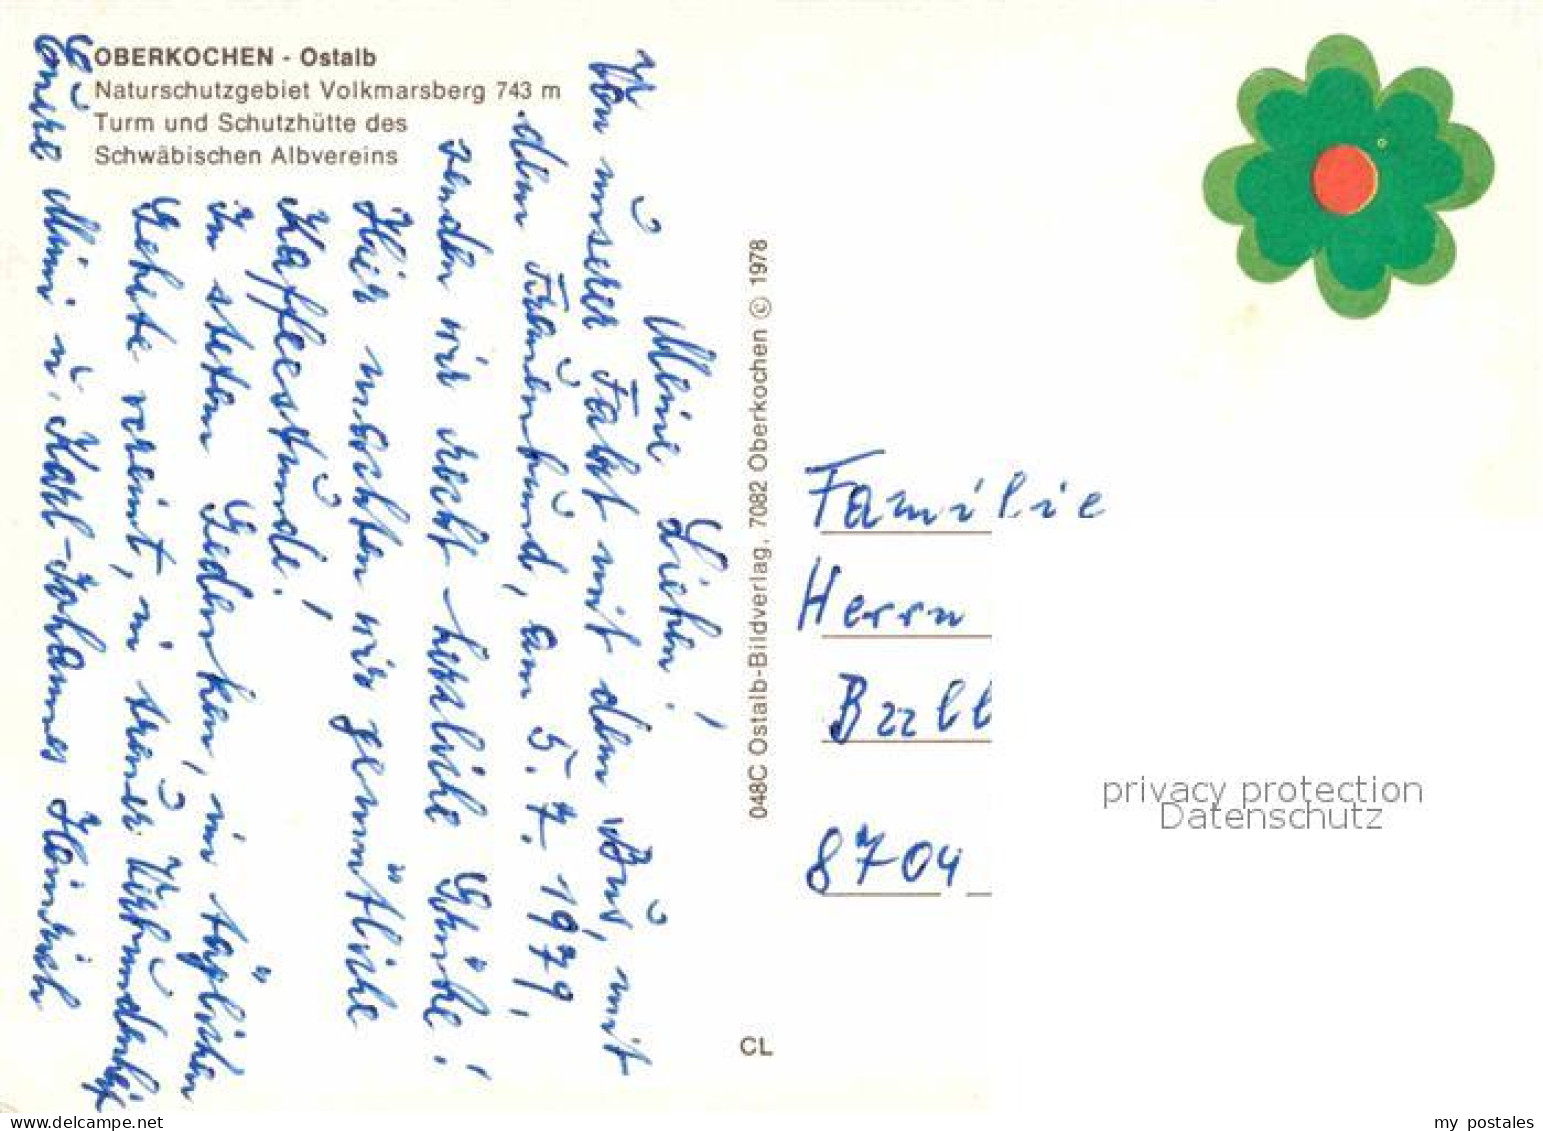 OBERKOCHEN - Ostalb
Naturschutzgebiet Volkmarsberg 743 m
Turm und Schutzhütte des
Schwäbischen Albvereins
Meine Lieben!
Von unserer Fahrt mit dem Bus, mit
dem Frauenbund, am 5.7.1979,
senden wir recht herzliche Grüße!
Hier machten wir gemütliche
Kaffeestunde!
In stetem Gedenken, im täglichen
Gebete vereint, in treuer Verbundenheit
Eure Mimi u. Karl-Johannes Heinrich
048C Ostalb-Bildverlag, 7082 Oberkochen © 1978
CL
Familie
Herrn
8704
privacy protection
Datenschutz
my postales
www.delcampe.net